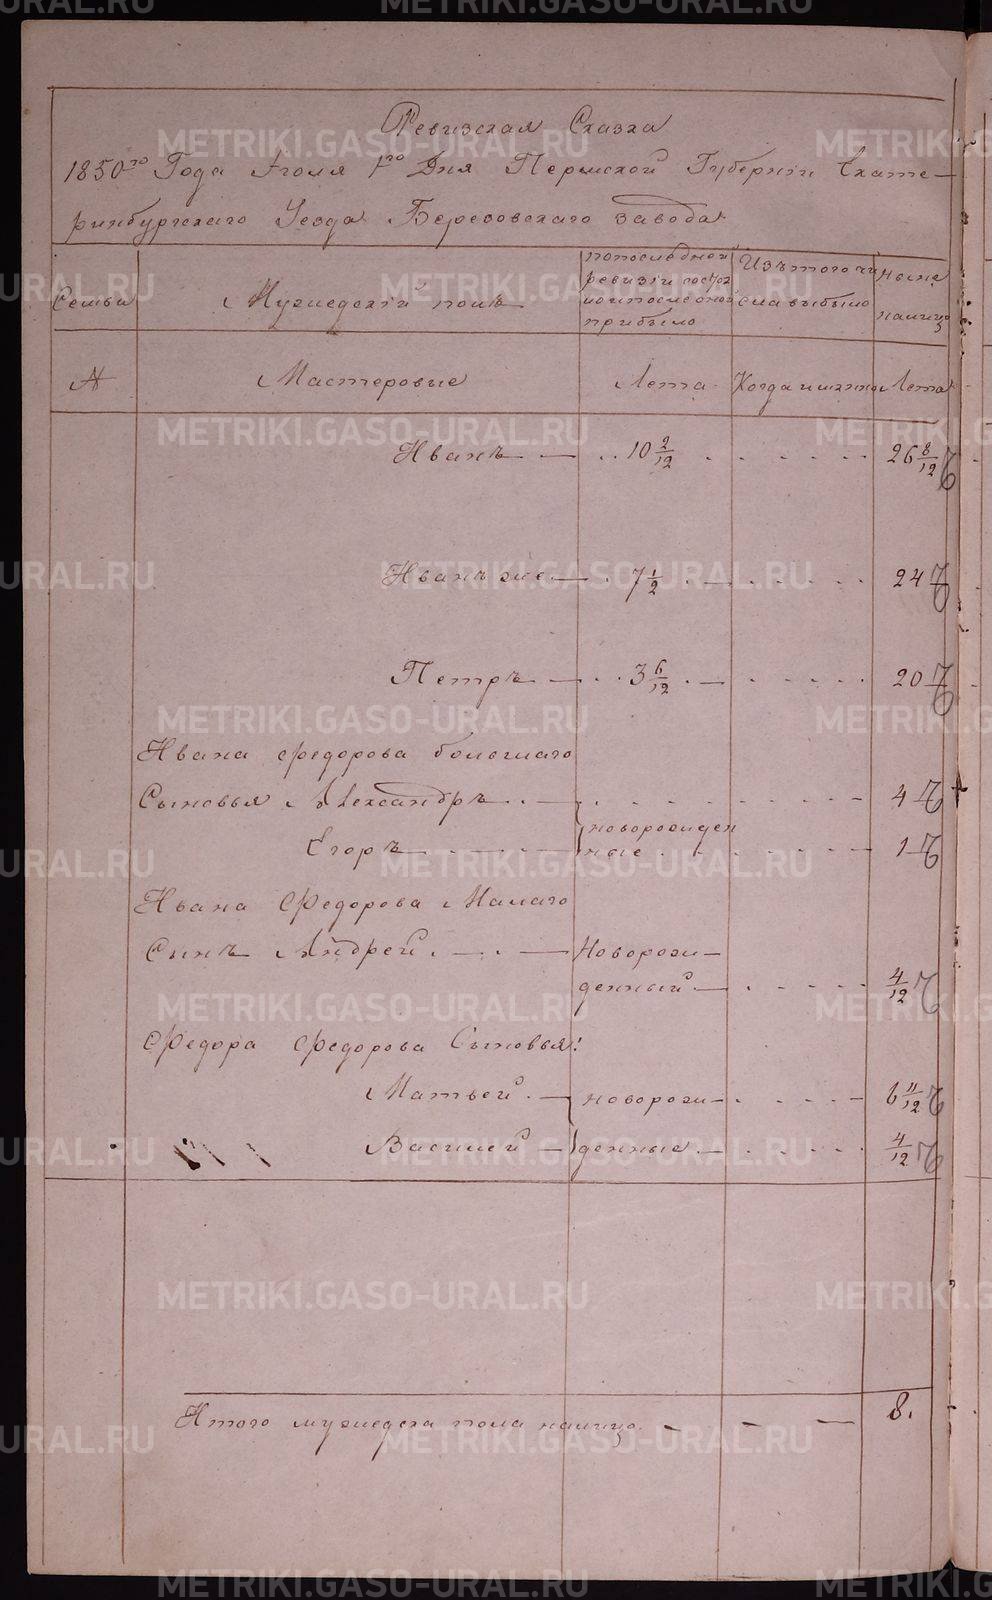 Ревизская Сказка
1850го Года Июля 1го Дня Пермской Губернiи Екате-
ринбургскаго Уезда Березовскаго завода
Семьи
Мужедескiй полъ
попоследней
ревизiи состоя
ло и после оной
прибыло
Изътого чи
сла выбыло
Ныне
налицо
№
Мастеровые
Лета
Когда и именно
Лета
Иванъ 10 2/12 26 8/12
Иванъ же 7 1/2 24
Петръ 3 6/12 20
Ивана Федорова большаго
Сыновья Александръ 4
новорожден
Егоръ ные 1
Ивана Федорова Малаго
Сынъ АндрейНоворож-
денный 4/12
Федора Федорова Сыновья:
Матвей новорож- 6 11/12
Василей денные 4/12
Итого мужедеска пола налицо 8.
METRIKI.GASO-URAL.RU